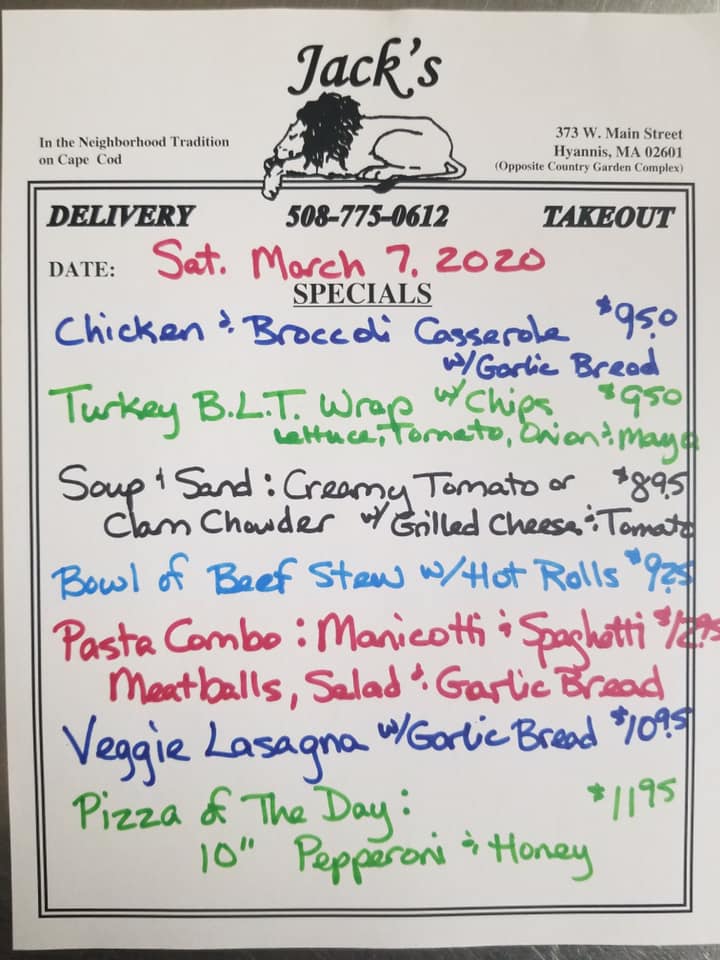 Jack's
In the Neighborhood Tradition
on Cape Cod
373 W. Main Street
Hyannis, MA 02601
(Opposite Country Garden Complex)
DELIVERY 508-775-0612 TAKEOUT
DATE: Sat. March 7, 2020
SPECIALS
Chicken & Broccoli Casserole $9.50
w/Garlic Bread
Turkey B.L.T. Wrap w/Chips $9.50
Lettuce, Tomato, Onion & Mayo
Soup & Sand: Creamy Tomato or $8.95
Clam Chowder w/ Grilled Cheese & Tomato
Bowl of Beef Stew w/Hot Rolls $9.25
Pasta Combo: Manicotti & Spaghetti $12.95
Meatballs, Salad & Garlic Bread
Veggie Lasagna w/Garlic Bread $10.95
Pizza of The Day: $11.95
10" Pepperoni & Honey